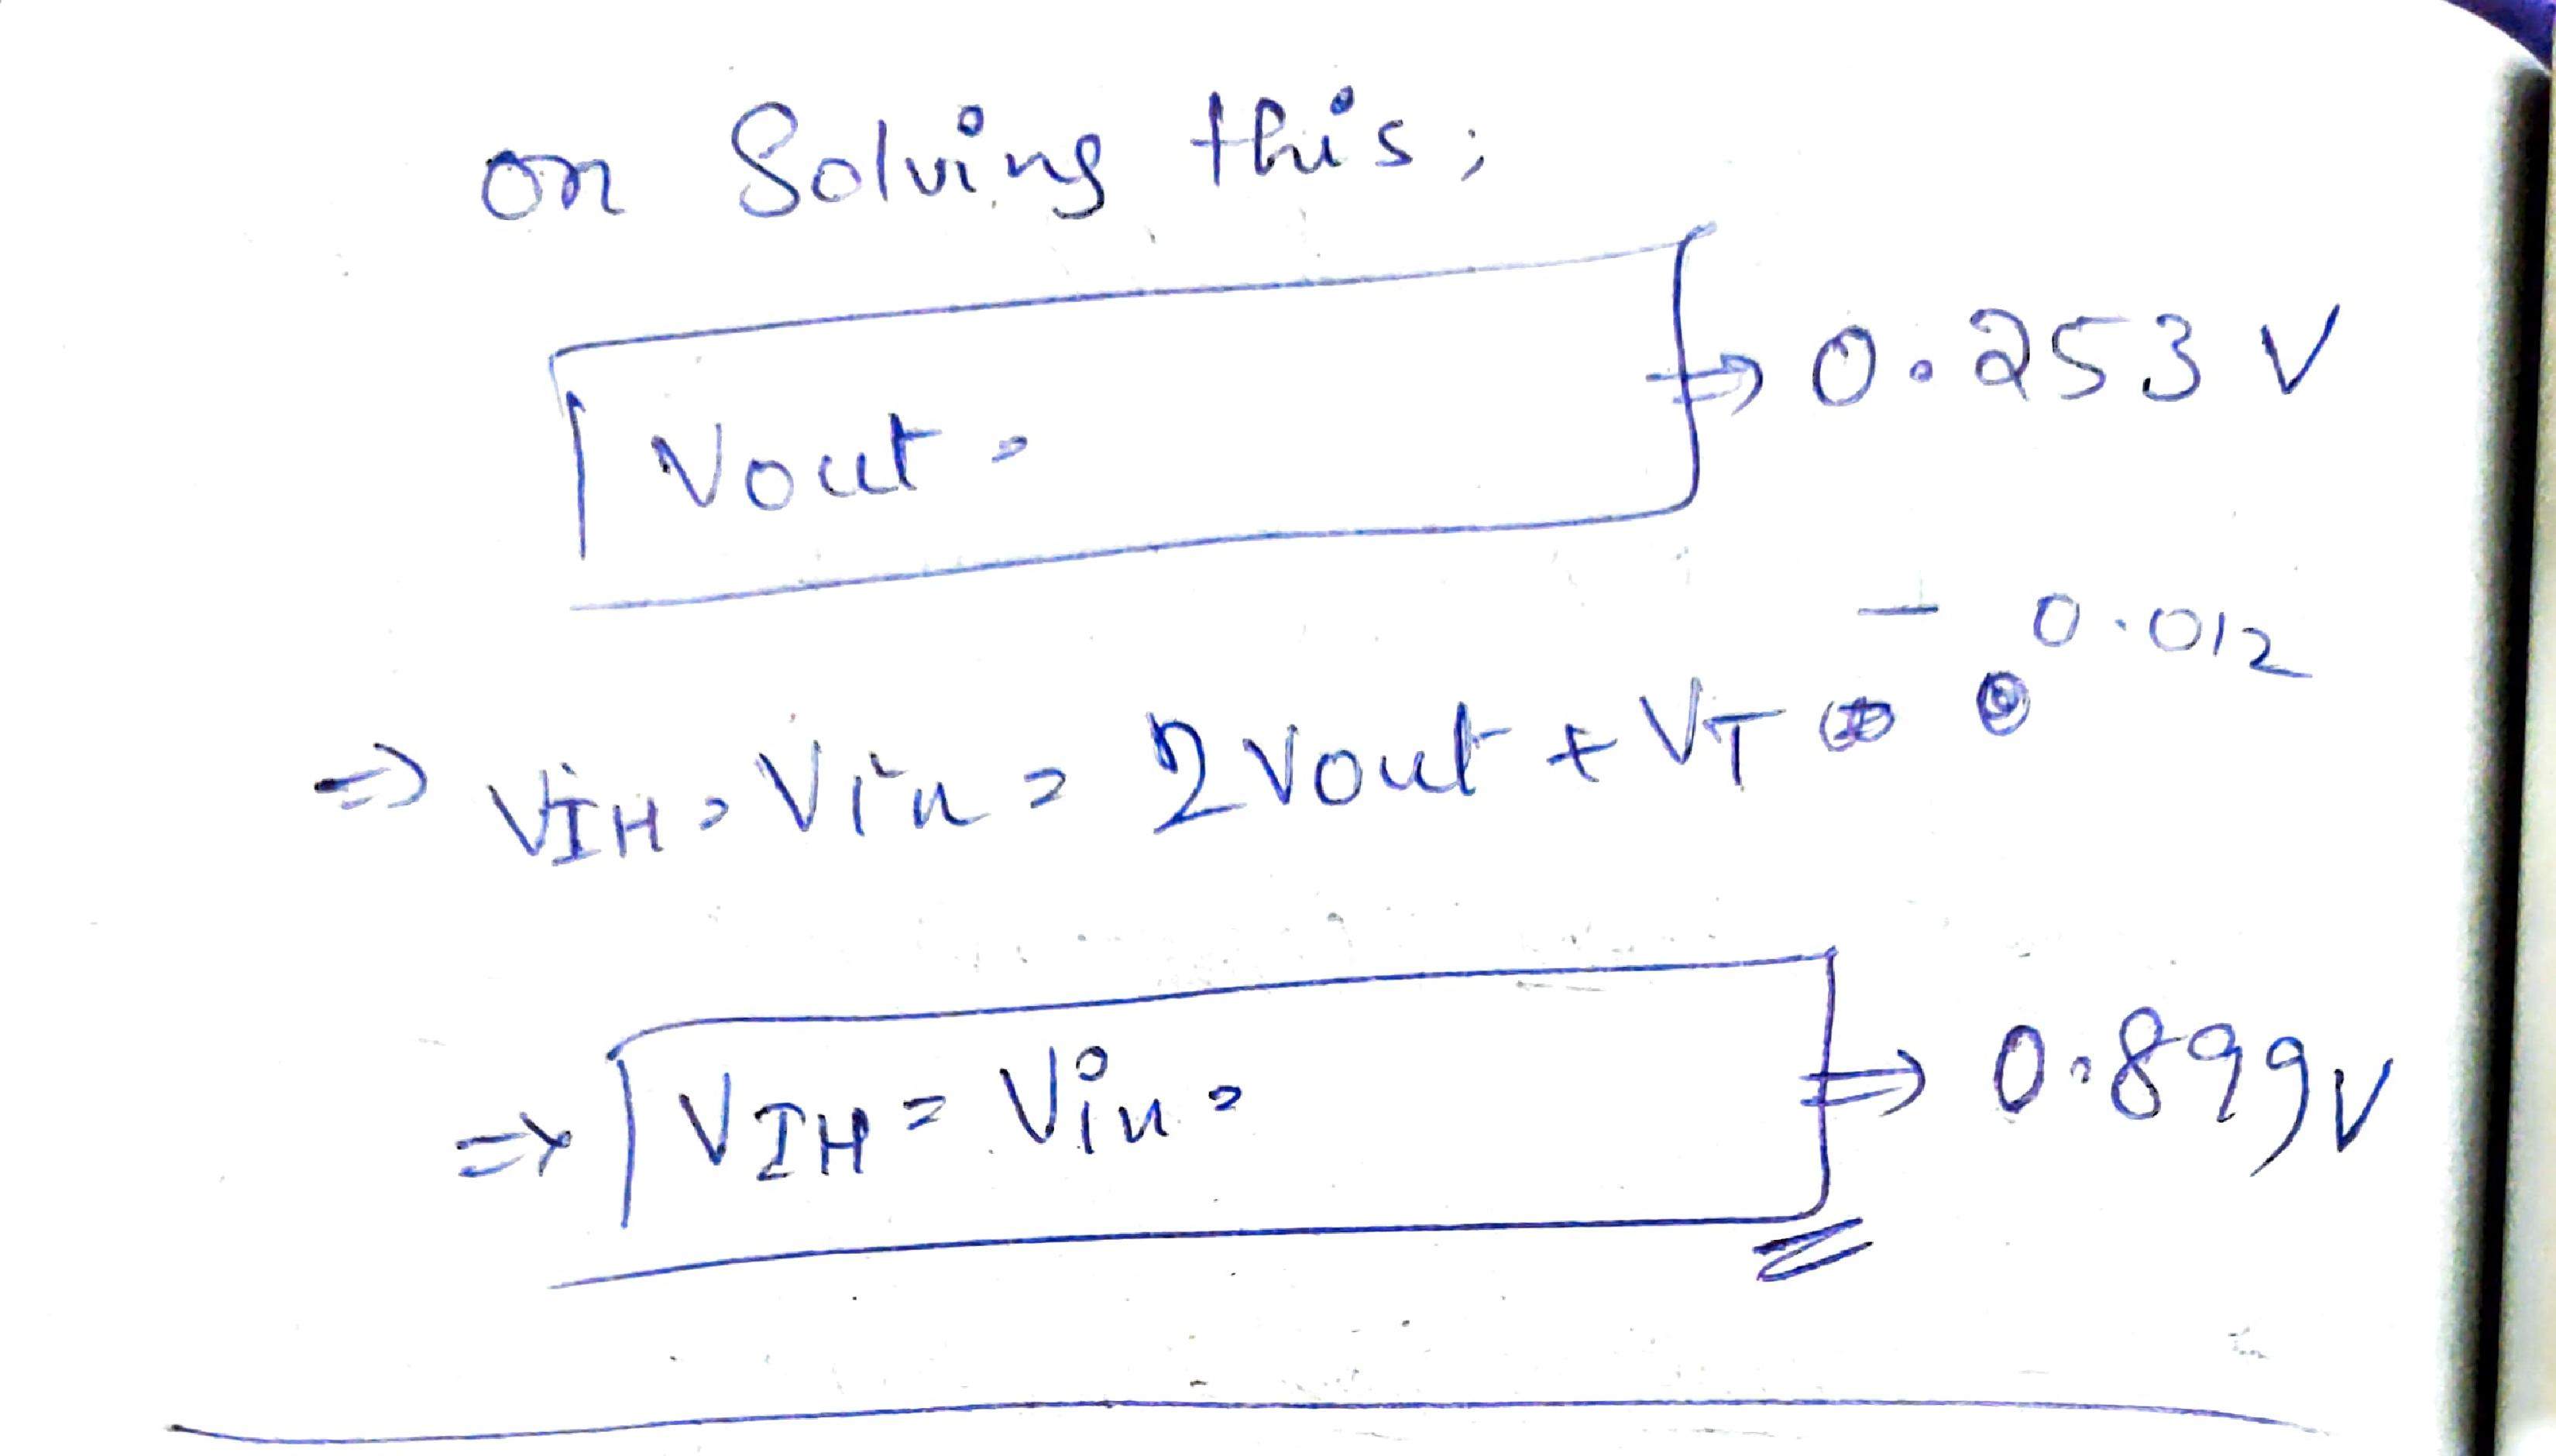 on Solving this;
Vout = ⇒ 0.253 V
⇒ VIH = Vin = 2 Vout + VT - 0.012
⇒ VIH = Vin = ⇒ 0.899V